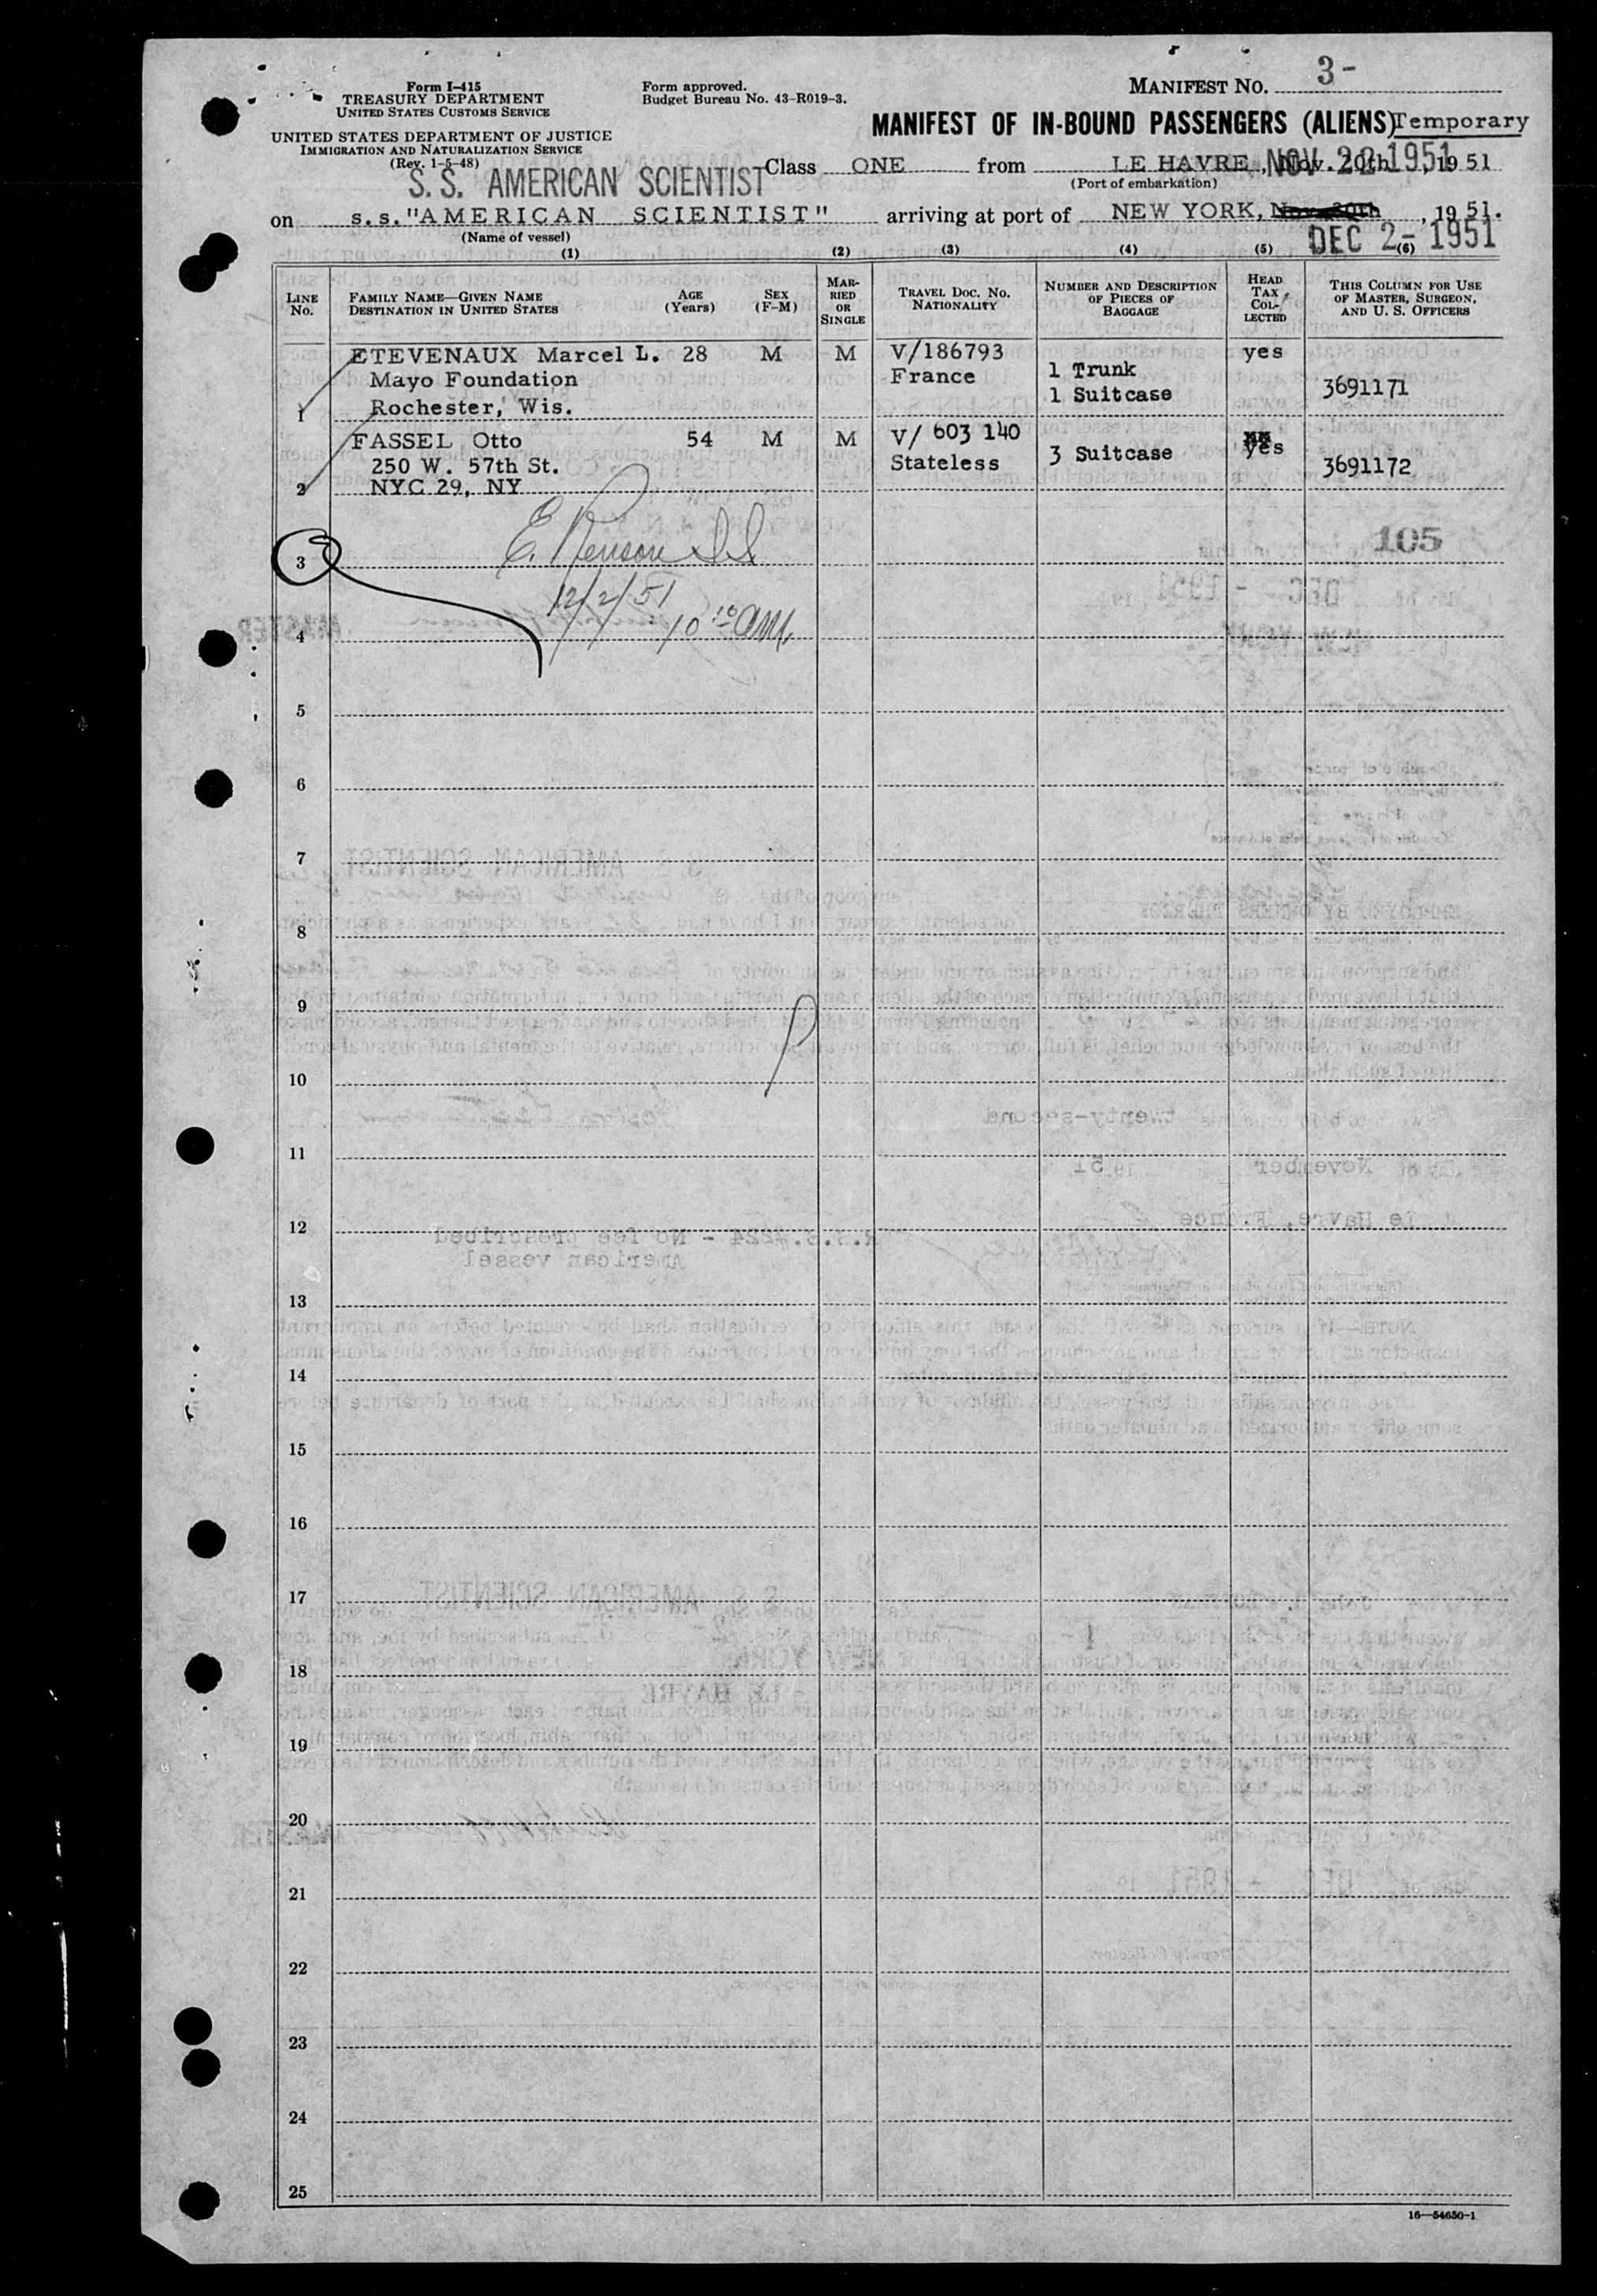 Form I-415
TREASURY DEPARTMENT
UNITED STATES CUSTOMS SERVICE
UNITED STATES DEPARTMENT OF JUSTICE
IMMIGRATION AND NATURALIZATION SERVICE
(Rev. 1-5-48)
Form approved.
Budget Bureau No. 43-R019-3.
MANIFEST NO. 3-
MANIFEST OF IN-BOUND PASSENGERS (ALIENS) Temporary
S. S. AMERICAN SCIENTIST
Class ONE from LE HAVRE, Nov. 20th, 1951
NOV 22 1951
(Port of embarkation)
on s.s. "AMERICAN SCIENTIST" arriving at port of NEW YORK, Nov. 30th, 1951.
DEC 2- 1951
(Name of vessel)
(1) (2) (3) (4) (5) (6)
LINE No. FAMILY NAME—GIVEN NAME DESTINATION IN UNITED STATES AGE (Years) SEX (F-M) MARRIED OR SINGLE TRAVEL DOC. NO. NATIONALITY NUMBER AND DESCRIPTION OF PIECES OF BAGGAGE HEAD TAX COLLECTED THIS COLUMN FOR USE OF MASTER, SURGEON, AND U. S. OFFICERS
ETEVENAUX Marcel L. 28 M M V/186793 yes
Mayo Foundation France 1 Trunk
1 Rochester, Wis. 1 Suitcase 3691171
FASSEL Otto 54 M M V/ 603 140 yes
250 W. 57th St. Stateless 3 Suitcase 3691172
2 NYC 29, NY
105
3
12/2/51
10 10 AM.
4
5
6
7
8
9
10
11
12
13
14
15
16
17
18
19
20
21
22
23
24
25
16—54650-1